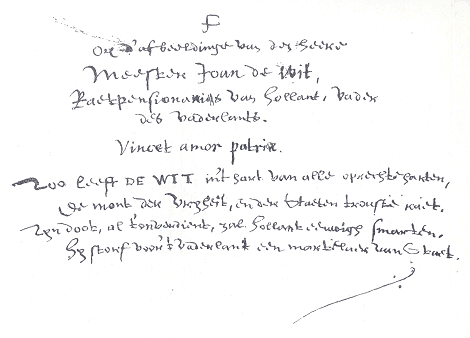 Op d'afbeeldinge van den heere
Meester Joan de Wit,
Raetpensionaris van Hollant, Vader
des Vaderlants.
Vincet amor patriæ.
Zoo leeft DE WIT in't hart van alle oprechte harten,
De mont der Vryheit, en der Staeten trouste
Zyn doot, al t'onverdient, zal Hollant eeuwigh smarten.
Hy storf voor't Vaderlant een martelaer van Staet.